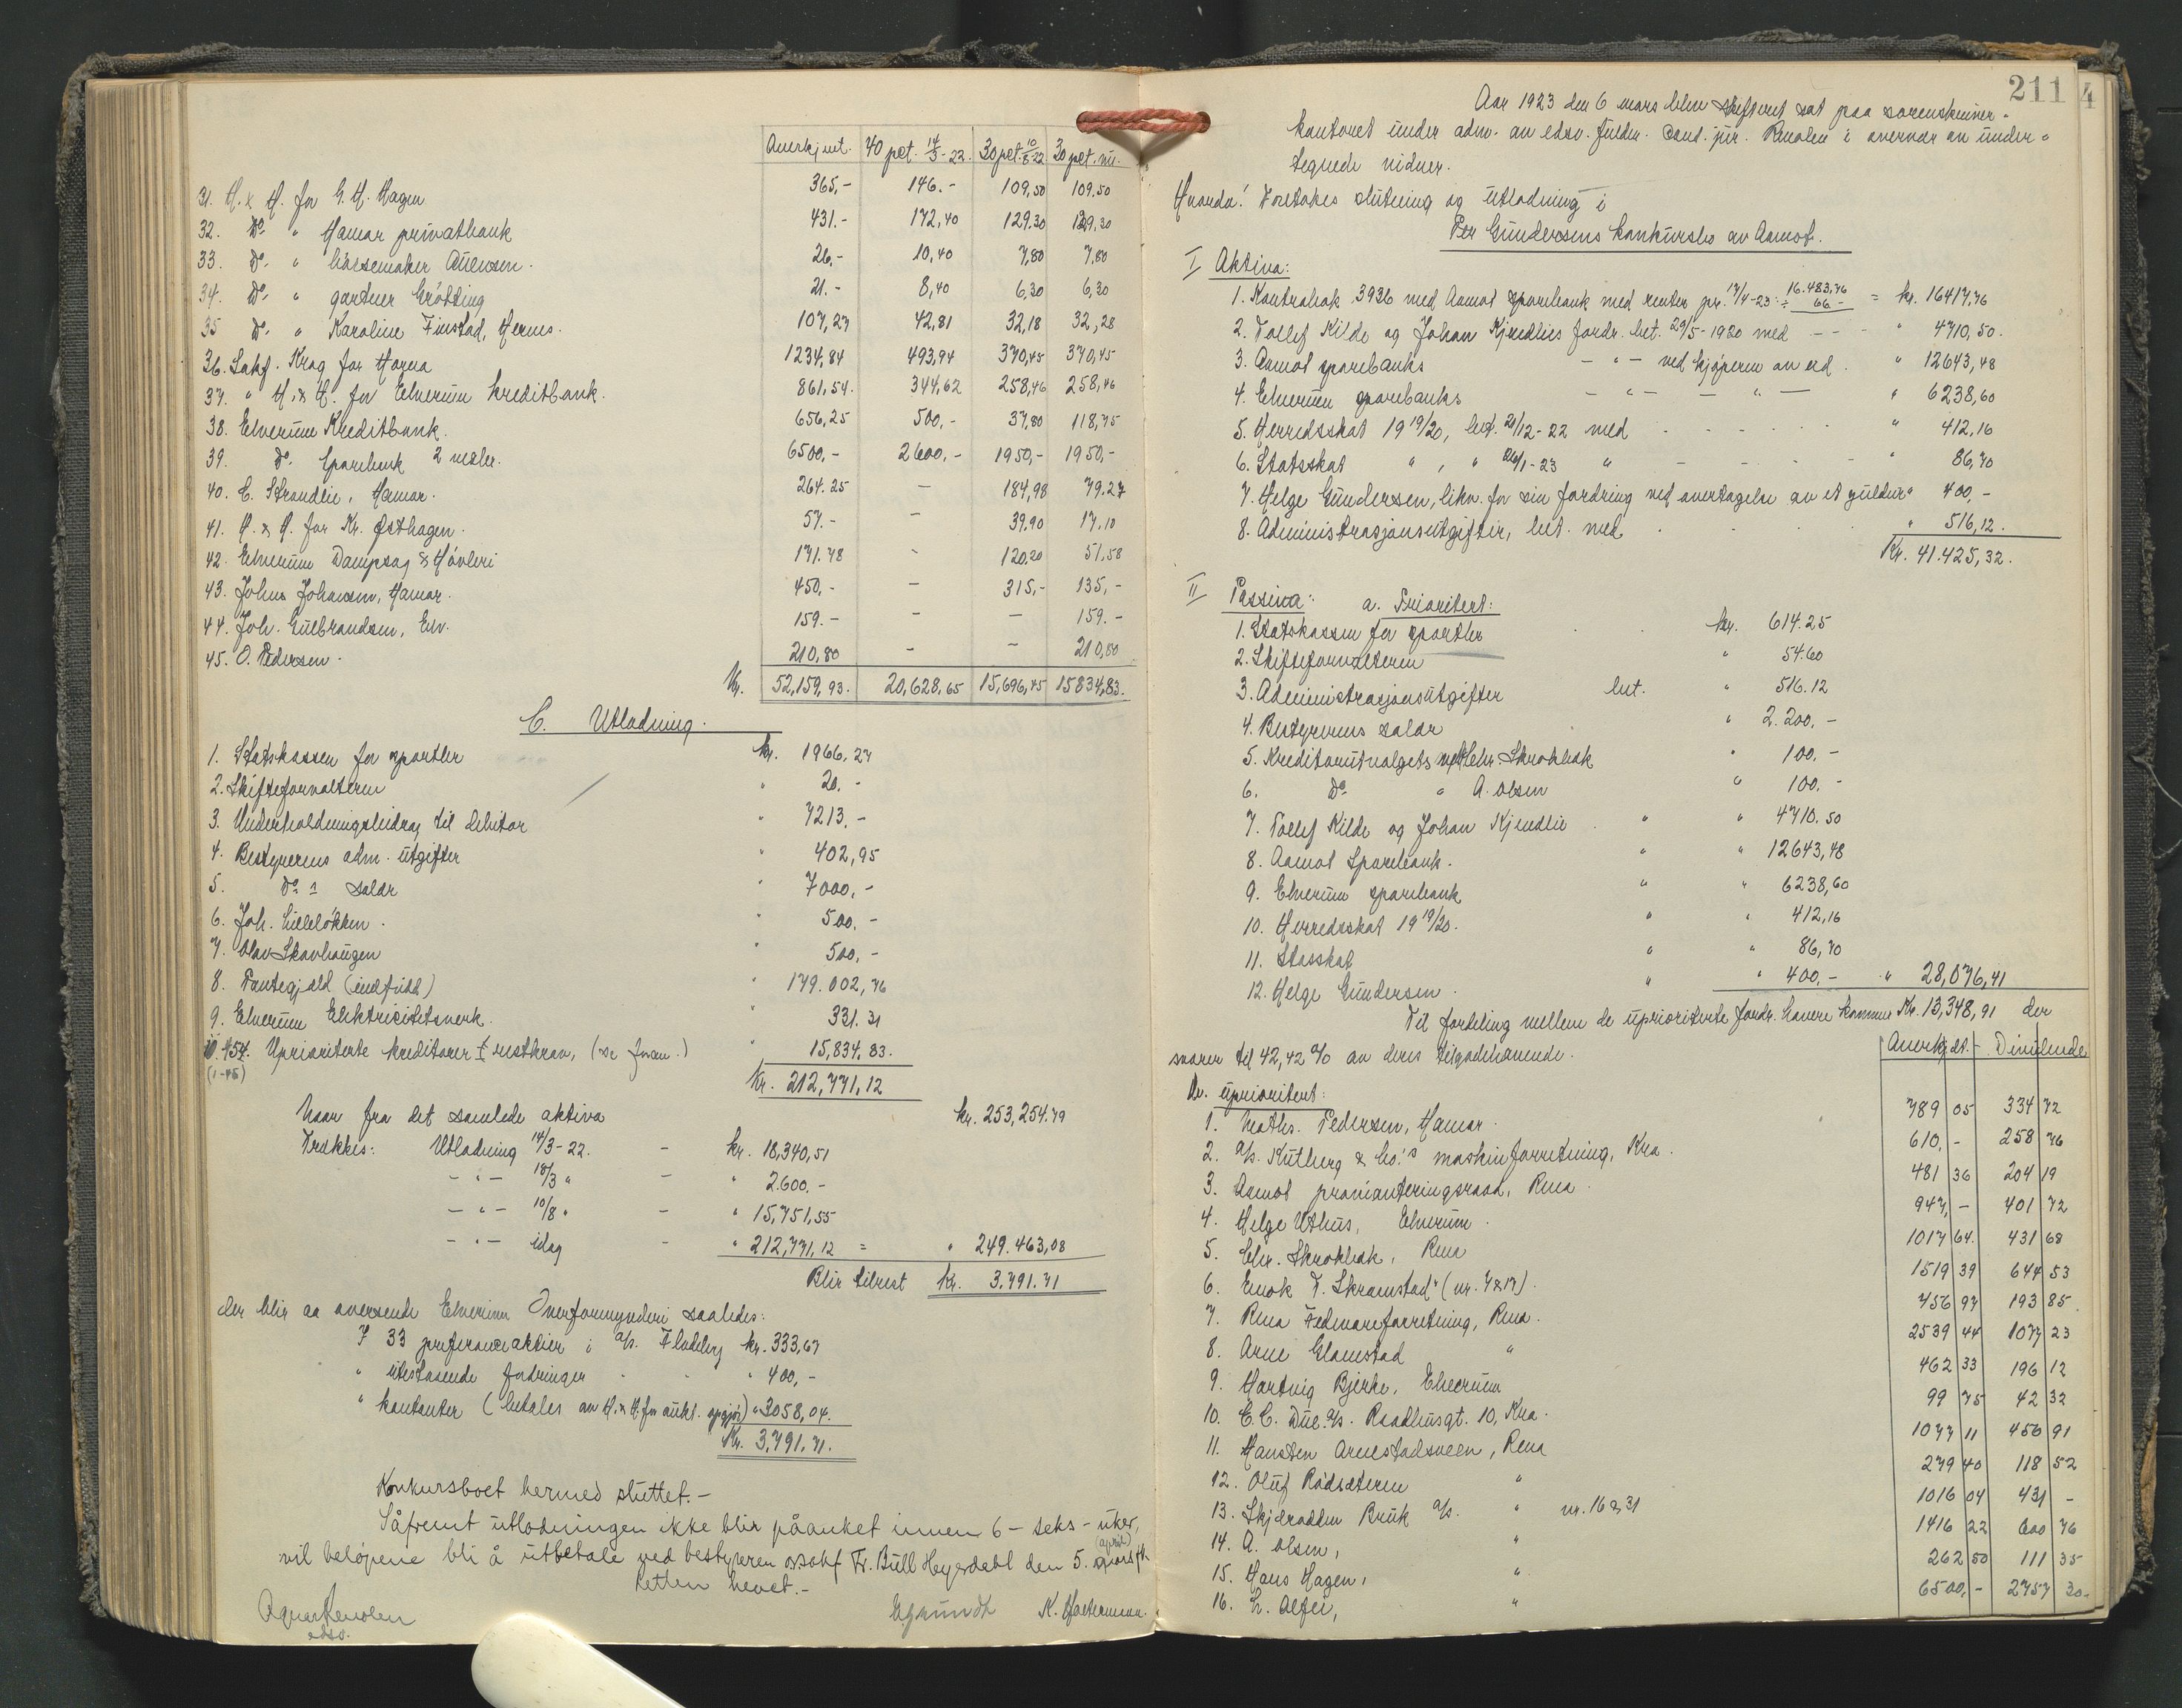 Anerkjent. 40 pct. 14/3-22. 30 pct. 10/8-22 30 pct. nu.
31. H. & H. for G. H. Hagen 365,- 146.- 109,50 109.50
32. Do " Hamar privatbank 431.- 172,40 129.30 129,30
33. Do " Auensen. 26,- 10,40 7,80 7,80
34. Do " gartner Grötting 21.- 8,40 6,30 6,30
35 Do " Karoline Finstad, Hernes. 107,27 42,81 32,18 32,28
36. Sakf. Krog for Horua 1234,84 493,94 370,45 370,45
37. " H. & H. for Elverum Kreditbank. 861,54. 344,62 258,46 258,46
38. Elverum Kreditbank. 656,25 500,- 37,80 118,45
39. Do Sparebank 2 vexler. 6500,- 2600,- 1950,- 1950,-
40. C. Strandlie, Hamar. 264.25 - 184,98 79.27
41. H. & H. for Kr. Østhagen. 57.- - 39.90 17.10
42. Elverum Dampsag & Høvleri 171.78 - 120,20 51,58
43. Johns Johansen, Hamar. 450,- - 315,- 135,-
44. Joh. Gulbrandsen, Elv. 159.- - - 159.-
45. O. Pedersen. 210,80 - - 210,80
Kr. 52,159,93. 20,628,65 15,696,45 15834,83.
C. Utlodning.
1. Statskassen for sportler kr. 1966,27
2. Skifteforvalteren " 20.-
3. Underholdningsbidrag til debitor " 7213.-
4. Bestyrerens adm. utgifter " 402,95
5. Do s salær " 7000,-
6. Joh. Lilleløkken. " 500,-
7. Olav Skavhaugen " 500,-
8. Pantegjæld (indfridd) " 179.002,76
9. Elverum Elektricitetsverk. " 331.31
10-54. Uprioriterte kreditorer restkrav, (se foran.) " 15,834,83.
(1-45)
Kr. 212,771,12
Naar fra det samlede aktiva kr. 253,254.79
Trækkes: Utlodning 14/3-22. - kr. 18,340,51
- " - 18/3 " - " 2.600.-
- " - 10/8 " - " 15,751,55
- " - idag - " 212,771,12 = " 249.463,08
Blir tilrest Kr. 3.791.71
der blir aa oversende Elverum Overformynderi saaledes:
I 33 preferanceaktier i a/s. Fladeby kr. 333,67
" utestaaende fordringer " 400,-
" kontanter (betales av H. & H. for aukt. opgjør) " 3058,04.
Kr. 3,791.71.
Konkursboet hermed sluttet.-
Såfremt utlodningen ikke blir påanket innen 6 - seks - uker,
vil beløpene bli å utbetale ved bestyreren o.r.sakf. Fr. Bull Heyerdahl den 5. (april)
Retten hevet.-
edsv.
211 4
Aar 1923 den 6 mars blev skifteret sat paa sorenskriver-
kontoret under adm. av edsv. fuldm. Cand. jur. Revolen i overvær av under-
tegnede vidner.
Hvorda! Foretokes slutning og utlodning i
Per Gundersens konkursbo av Aamot.
I Aktiva:
1. Kontrabok 3936 med Aamot sparebank med renter pr. 17/4-23: 16.483,76 ÷ 66.- = kr. 16417,76
2. Tollef Kilde og Johan Kjendlies fordr. bet. 29/5-1920 med - - - " 4710,50.
3. Aamot sparebanks - " - ved kjøperen av eid. " 12643,48
4. Elverum sparebanks - " - - " - " 6238,60
5. Herredsskat 19 19/20, bet. 21/12-22 med " 412,16
6. Statsskat " , " 26/1-23 " " 86,70
7. Helge Gundersen, likv. for sin fordring ved overtagelse av et guldur " 400,-
8. Administrasjonsutgifter, bet. med " 516,12.
Kr. 41.425,32.
II Passiva: a. Prioritert:
1. Statskassen for sportler kr. 614.25
2. Skifteforvalteren " 54.60
3. Administrasjonsutgifter bet. " 516.12
4. Bestyrerens salær " 2.200,-
5. Kreditorutvalgets Chr. Skrokbæk " 100.-
6. Do " A. Olsen " 100,-
7. Tollef Kilde og Johan Kjendlie " " 4710.50
8. Aamot Sparebank. " " 12643,48
9. Elverum sparebank " " 6238,60
10. Herredsskat 19 19/20. " " 412,16
11. Stasskat " " 86,70
12. Helge Gundersen. " " 400,- " 28,076,41
Til fordeling mellem de uprioriterte fordr. havere kommer Kr. 13,348,91 der
svarer til 42,42 % av deres tilgodehavende. Anerkjdt. Dividende
b. uprioritert:
1. Maths. Pedersen, Hamar. 789 05 334 72
2. a/s. Kutberg & Co.'s maskinforretning, Kra. 610,- 258 76
3. Aamot provianteringsraad, Rena. 481 36 204 19
4. Helge Uthus, Elverum. 947,- 401 72
5. Chr. Skrokbæk, Rena 1017 64. 431 68
6. Enok T. Skramstad (nr. 7 & 17). 1519 39 644 53
7. Rena Fedevareforretning, Rena. 456 97 193 85.
8. Arne Glamstad " 2539 44 1077 23
9. Hartvig Bjerke, Elverum 462 33 196 12
10. E. C. Due. a/s. Raadhusgt. 10, Kra. 99 75 42 32
11. Hansten Arnestadsveen, Rena 1077 11 456 91
12. Oluf Rødsæteren " 279 40 118 52
13. Skjærodden Bruk a/s. " nr. 16 & 31 1016 04 431 -
14. A. Olsen, " 1416 22 600 76
15. Hans Hagen, " 262 50 111 35
16. L. Alfei, " 6500,- 2757 30.